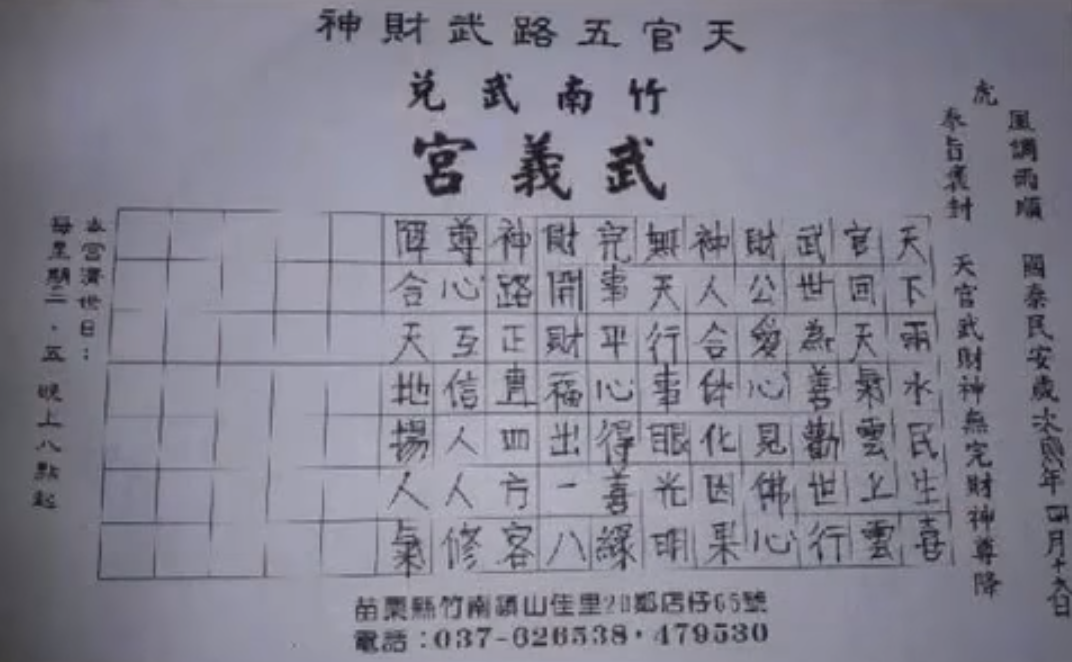 天官五路武財神
竹南武兌
武義宮
風調雨順 國泰民安歲次年四月十日
虎
奉旨褒封 天官武財神無完財神尊降
天下雨水民生喜
官回天氣雲上雲
武世為善勸世行
財公愛心見佛心
神人合体化因果
無天行事眼光明
完事平心得善緣
財開財福出一八
神路正直四方客
尊心互信人人修
降合天地揚人氣
本宮濟世日：
每星期二．五 晚上八點起
苗栗縣竹南鎮山佳里20鄰店仔65號
電話：037-626538·479530